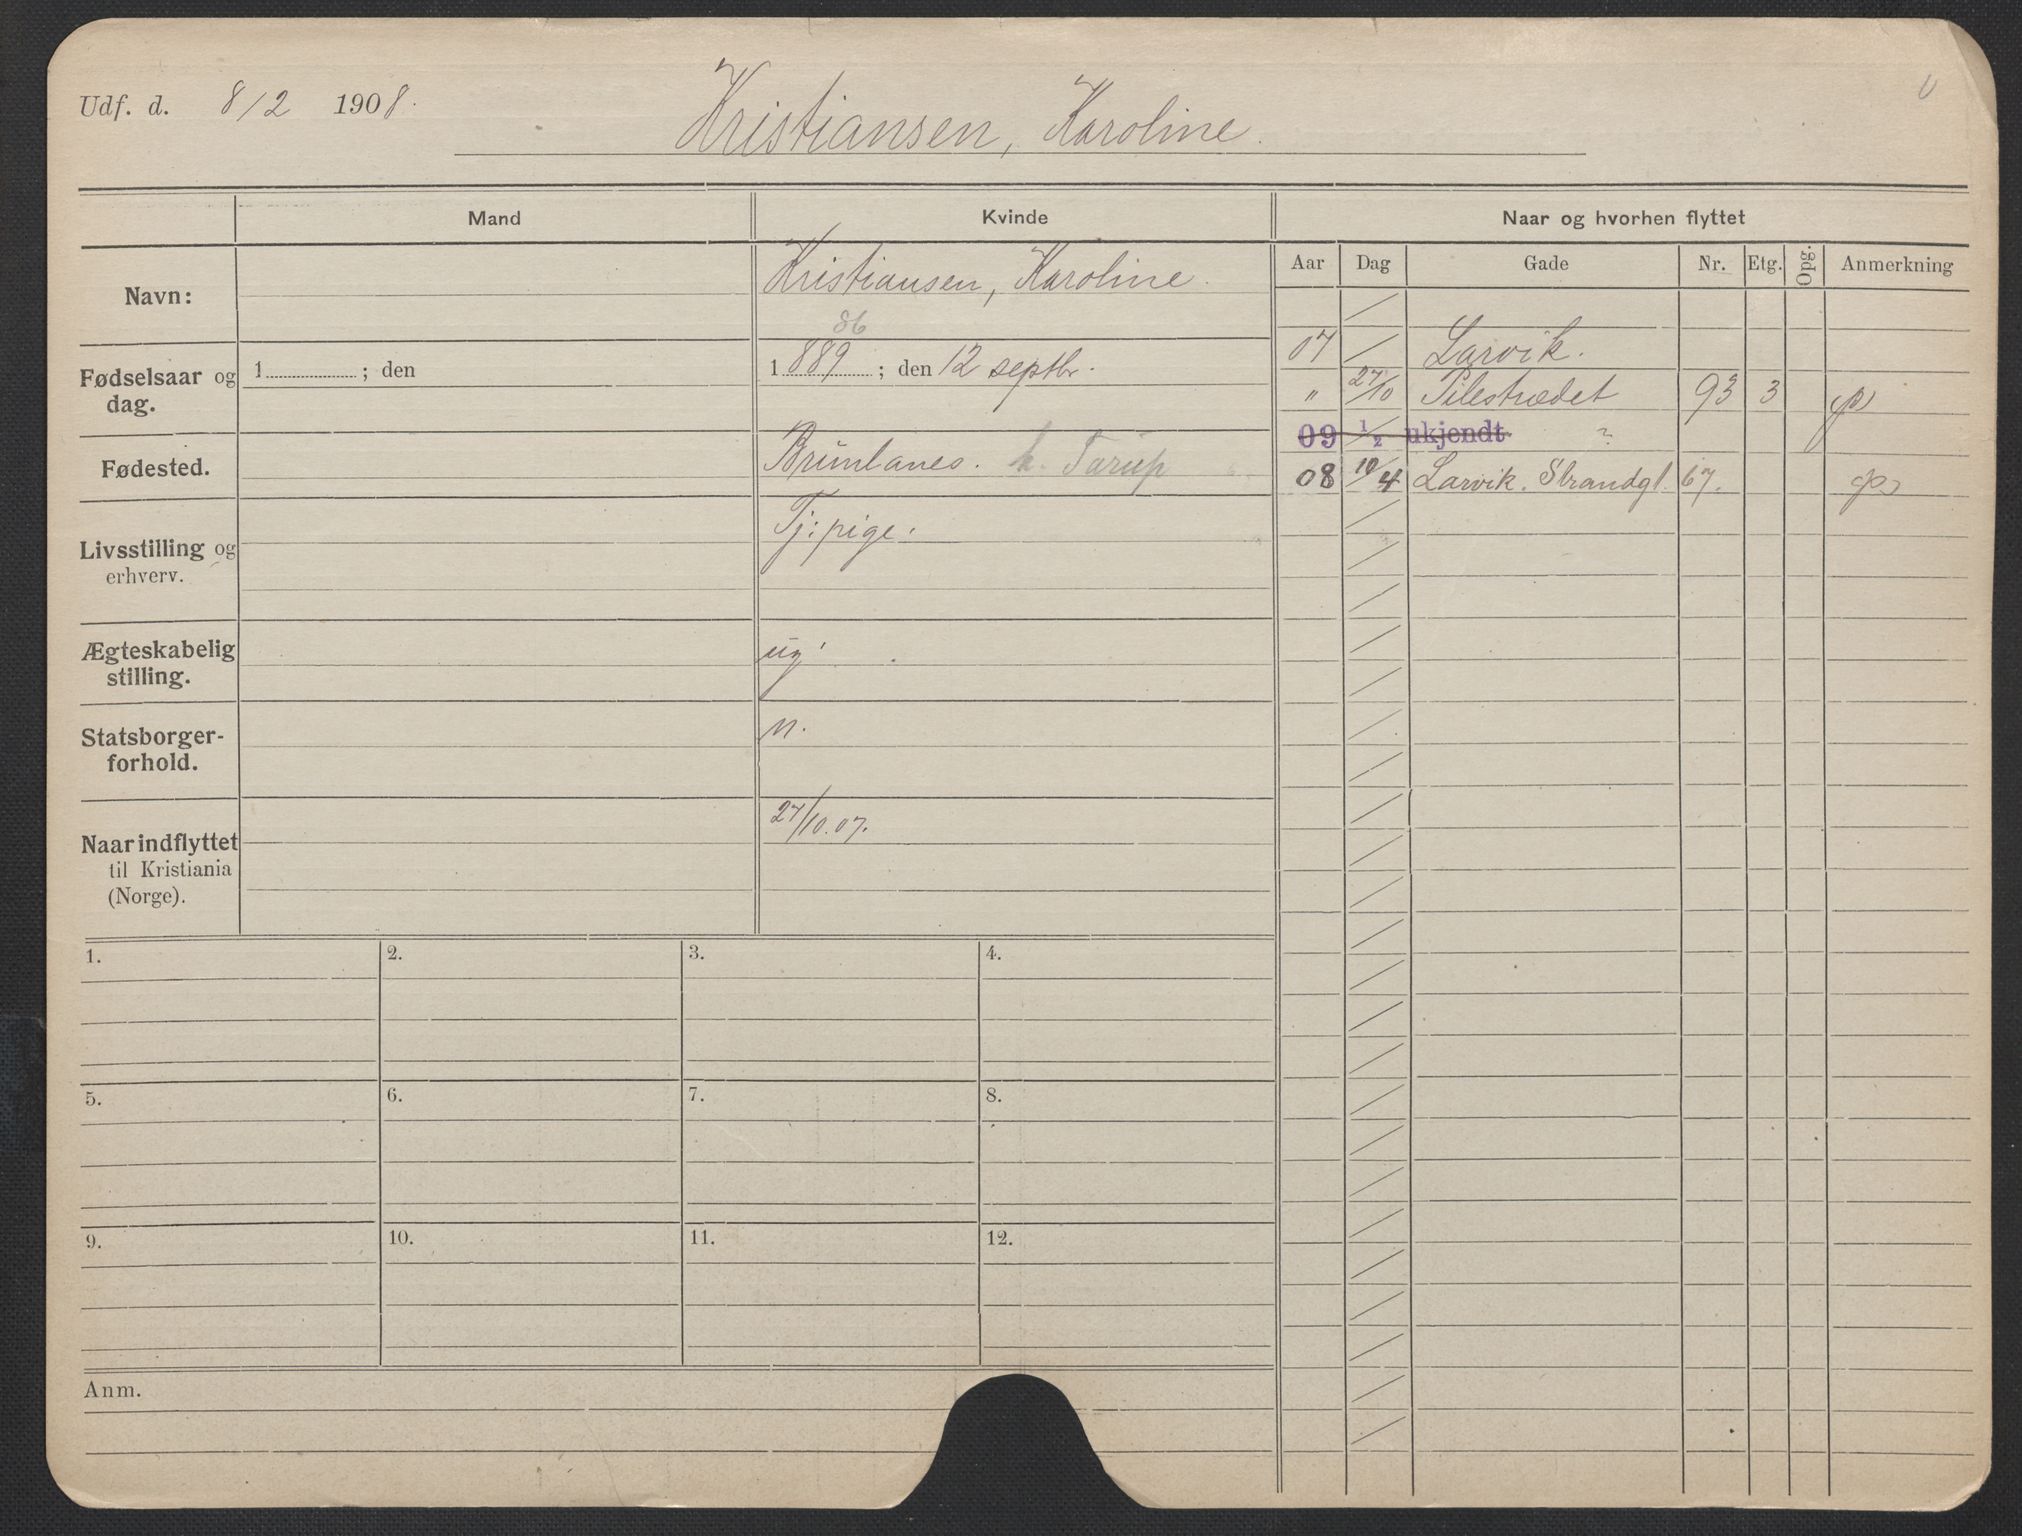 Udf. d. 8/2 1908.
Kristiansen, Karoline.
Mand
Kvinde
Naar og hvorhen flyttet
Aar Dag Gade Nr. Etg. Opg. Anmerkning
Navn:
Kristiansen, Karoline.
Fødselsaar og dag.
1 ; den
86
1 889 ; den 12 septbr.
Fødested.
Brunlanes. h. Tarup
Livsstilling og erhverv.
Tj: pige.
Ægteskabelig stilling.
ug
Statsborgerforhold.
n.
Naar indflyttet til Kristiania (Norge).
27/10.07.
07 / Larvik.
" 27/10 Pilestrædet 93 3
09 1/2 ukjendt ?
08 10/4 Larvik. Strandgt. 67.
1.
2.
3.
4.
5.
6.
7.
8.
9.
10.
11.
12.
Anm.